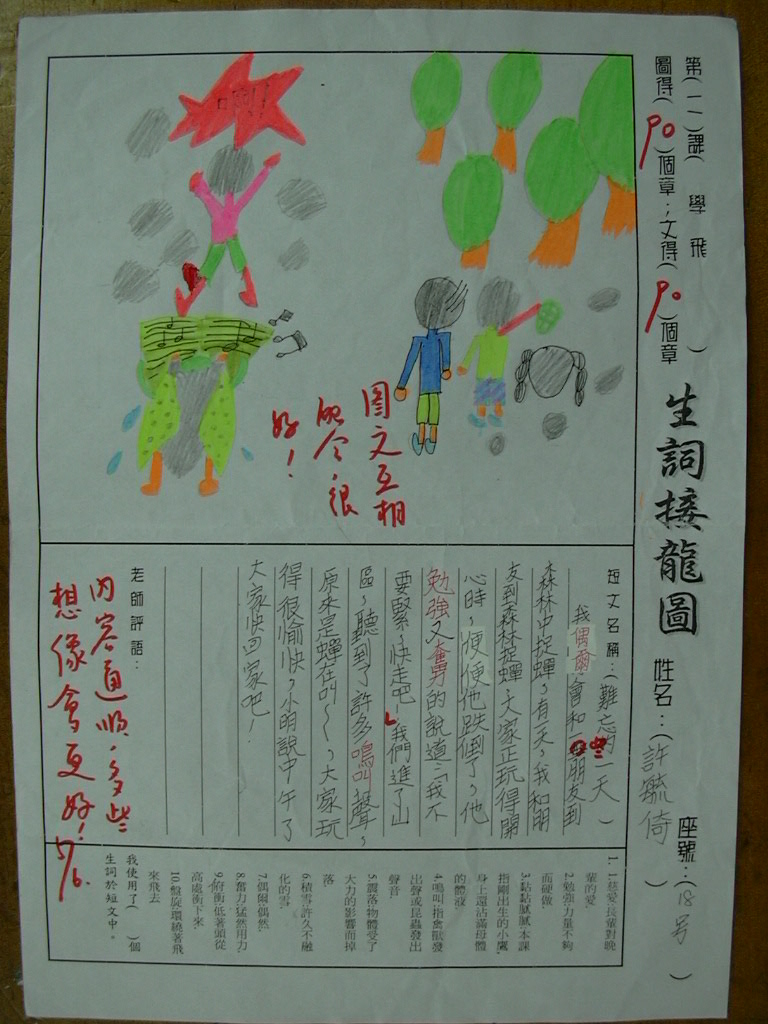 第(一一)課( 學 飛 )
圖得(90)個章；文得(90)個章
生詞接龍圖
姓名：(許毓倚)
座號：(18号)
圖文互相
配合，很
好！
短文名稱：(難忘的一天)
我偶爾會和一些朋友到
森林中捉蟬，有一天，我和朋
友到森林捉蟬，大家正玩得開
心時，便便他跌倒了，他
勉強又奮力的說道：「我不
要緊，快走吧！」我們進了山
區，聽到了許多鳴叫聲，
原來是蟬在叫～，大家玩
得很愉快，小明說中午了
大家快回家吧！
老師評語：
內容通順，多些
想像會更好！5/6.
1. 1.慈愛:長輩對晚
輩的愛.
2.勉強:力量不夠
而硬做.
3.黏黏膩膩:本課
指剛出生的小鷹,
身上還沾滿母體
的體液.
4.鳴叫:指禽獸發
出聲或昆蟲發出
聲音.
5.震落:物體受了
大力的影響而掉
落
6.積雪:許久不融
化的雪.
7.偶爾:偶然.
8.奮力:猛然用力.
9.俯衝:低著頭從
高處衝下來.
10.盤旋:環繞著飛
來飛去
我使用了( )個
生詞於短文中。